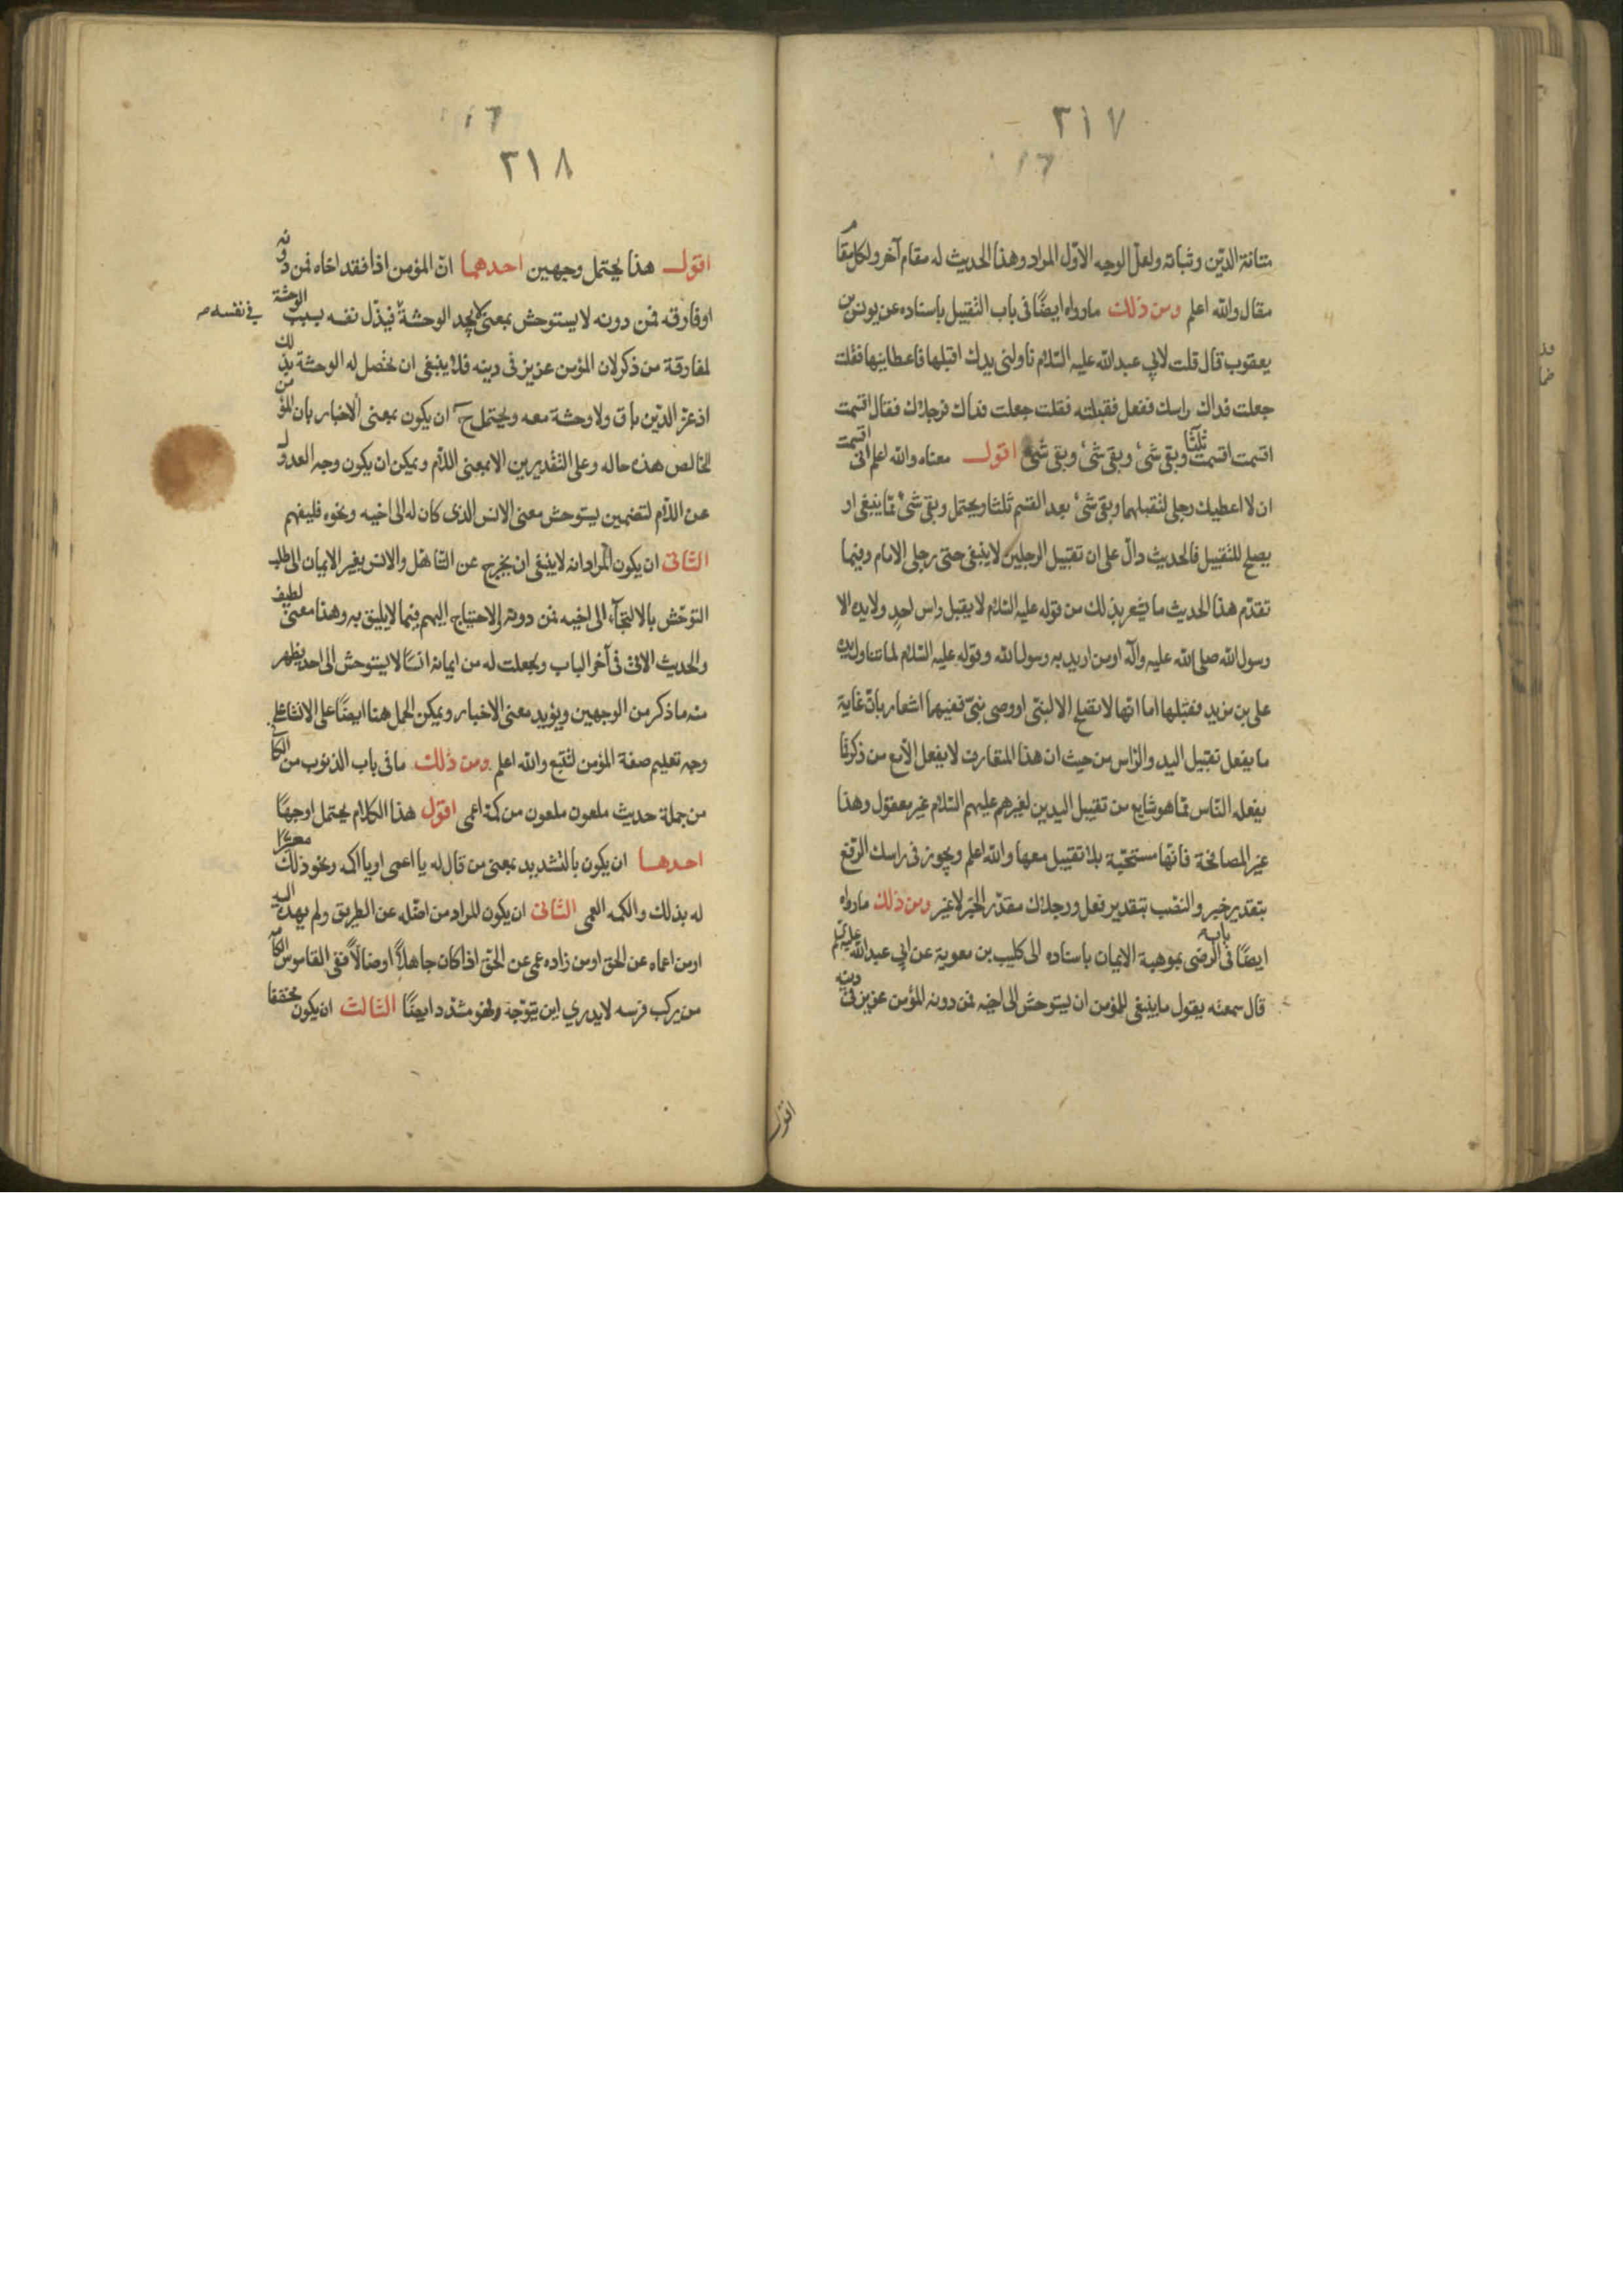 ٢١٧
١٦
متانة الدّين وثباته ولعلّ الوجه الاوّل المراد وهذا الحديث له مقام آخر ولكل مقام
مقال والله اعلم ومن ذلك ما رواه ايضًا فى باب التقبيل باسناده عن يونس بن
يعقوب قال قلت لابي عبد الله عليه السّلام ناولنى يدك اقبلها فاعطانيها فقلت
جعلت فداك راسك ففعل فقبلته فقلت جعلت فداك فرجلاك فقال اقسمت
اقسمت اقسمت ثلثًا وبقى شئ وبقى شئ وبقى شئ اقول معناه والله اعلم انى اقسمت
ان لا اعطيك رجلى لتقبلهما وبقى شئ بعد القسم ثلثا ويحتمل وبقى شئ ممّا ينبغى او
يصلح للتقبيل فالحديث دالّ على ان تقبيل الرجلين لا ينبغى حتى رجلى الامام وفيما
تقدّم هذا الحديث ما يشعر بذلك من قوله عليه السّلام لا يقبل راس احدٍ ولا يده الا
رسول الله صلى الله عليه وآله او من اريد به رسول الله وقوله عليه السّلام لما تناول يده
على بن مزيد فقبّلها اما انها لا تصلح الا لنبىّ او وصى نبىّ ففيهما اشعار بانّ غاية
ما يفعل تقبيل اليد والرّاس من حيث ان هذا المتعارف لا يفعل الّا مع من ذكر فما
يفعله النّاس ممّا هو شايع من تقبيل اليدين لغيرهم عليهم السّلام غير معقول وهذا
غير المصافحة فانّها مستحبّة بلا تقبيل معها والله اعلم ويجوز فى راسك الرّفع
بتقدير خبر والنصب بتقدير فعل ورجلاك مقدّر الخبر لا غير ومن ذلك ما رواه
ايضًا فى باب الرضى بموهبة الايمان باسناده الى كليب بن معوية عن ابي عبد الله عليه السّلم
قال سمعته يقول ما ينبغى للمؤمن ان يستوحش الى اخيه فمن دونه المؤمن عزيز فى دينه
اقول
١٦
٢١٨
اقول هذا يحتمل وجهين احدهما انّ المؤمن اذا فقد اخاه فمن دونه
او فارقه فمن دونه لا يستوحش بمعنى لا يجد الوحشة فيذلّ نفسه بسبب الوحشة
فى نفسه صح
لمفارقة من ذكر لان المؤمن عزيز فى دينه فلا ينبغى ان تحصل له الوحشة بذلك
اذ عزّ الدّين باق ولا وحشة معه ويحتمل ح ان يكون بمعنى الاخبار بان المؤمن
الخالص هذه حاله وعلى التقديرين الا بمعنى اللّام ويمكن ان يكون وجه العدول
عن اللّام لتضمين يستوحش معنى الانس الذى كان له الى اخيه ونحوه فليفهم
الثانى ان يكون المراد انه لا ينبغى ان يخرج عن التاهل والانس بغير الايمان الى طلب
التوحّش بالالتجآء الى اخيه فمن دونه والاحتياج اليهم فيما لا يليق به وهذا معنى لطيف
والحديث الآتى فى آخر الباب ويجعلت له من ايمانه انسًا لا يستوحش الى احد يظهر
منه ما ذكر من الوجهين ويؤيد معنى الاخبار ويمكن الحمل هنا ايضًا على الانشا على
وجه تعليم صفة المؤمن لتتبع والله اعلم ومن ذلك ما فى باب الذنوب من الكا
من جملة حديث ملعون ملعون من كمّه اعمى اقول هذا الكلام يحتمل اوجهًا
احدها ان يكون بالتشديد بمعنى من قال له يا اعمى او يا اكمه ونحو ذلك معيّرا
له بذلك والكمه العمى الثانى ان يكون المراد من اضلّه عن الطريق ولم يهده اليه
او من اعماه عن الحق او من زاده عمى عن الحقّ اذا كان جاهلًا او ضالًّا ففى القاموس الكامه
من يركب فرسه لا يدري اين يتوّجه وهو مشدد ايضًا الثالث ان يكون مخففا